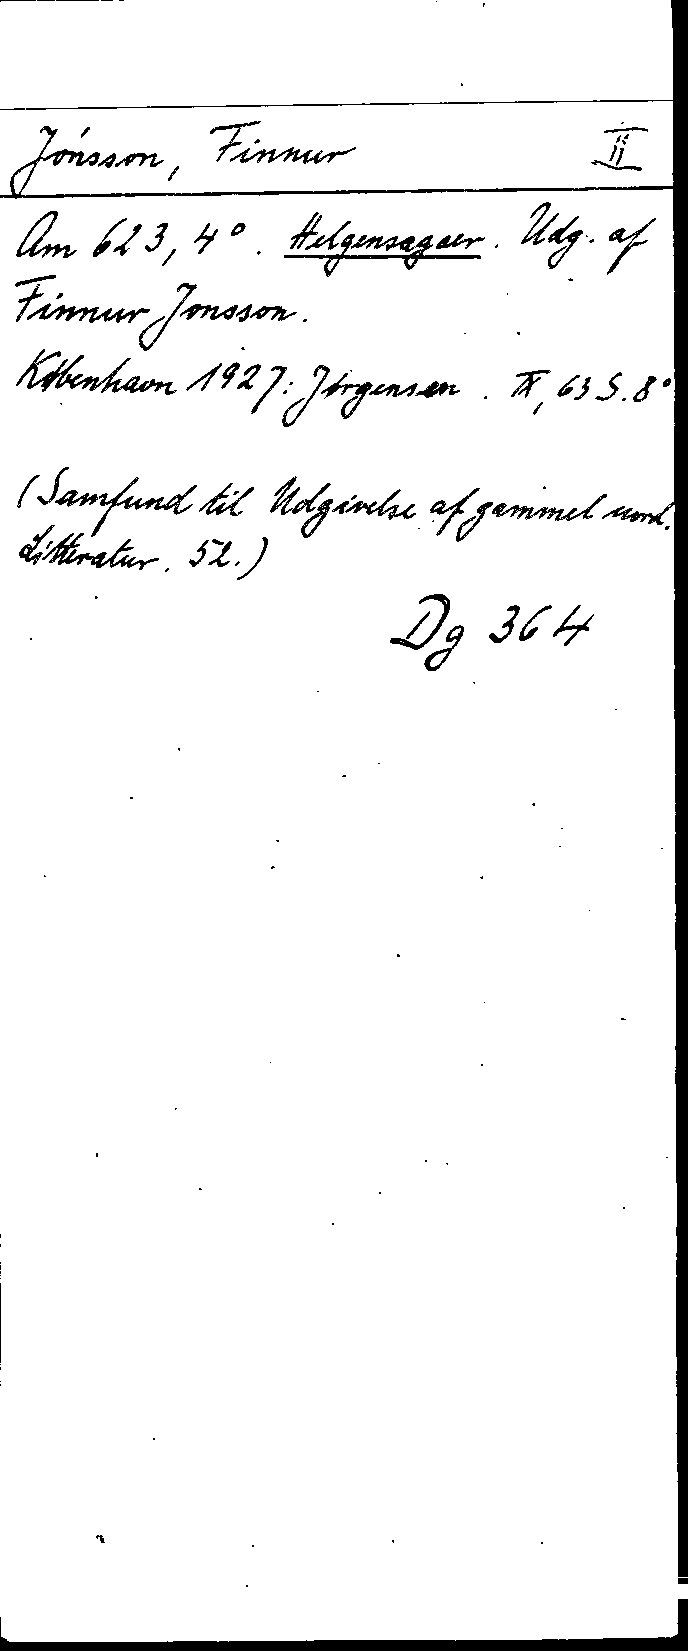 Jónsson, Finnur II
Am 623, 4°. Helgensagaer. Udg. af
Finnur Jonsson.
København 1927: Jørgensen. IX, 63 S. 8°
(Samfund til Udgivelse af gammel nord.
Litteratur. 52.)
Dg 364